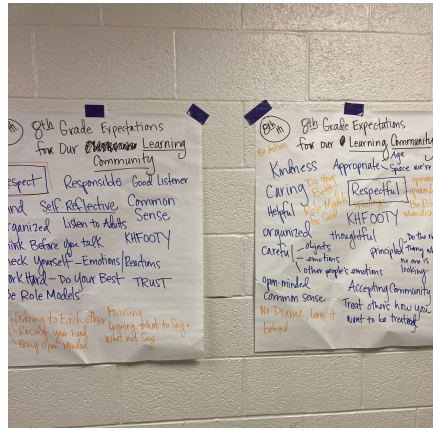 8th Grade Expectations
for Our Learning
Community
Respect Responsible Good Listener
Kind Self Reflective Common
Sense
Organized Listen to Adults
Think Before you talk KHFOOTY
Check Yourself - Emotions/Reactions
Work Hard - Do Your Best TRUST
Be Role Models
Listening to Each other Focusing
Raising your hand Knowing what to Say &
Being Open Minded what not Say
8th
8th Grade Expectations
for our Learning Community
Age
Kindness Appropriate space we're
Caring Do Your Best Respectful
Helpful Role Models KHFOOTY
organized thoughtful Do the
careful - objects principled thing
emotions no one is
other people's emotions looking
open-minded Accepting Community
Common sense Treat others how you
want to be treated
No Drama, leave it
behind